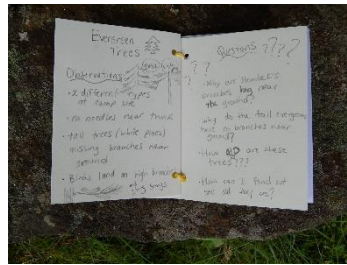 Evergreen
Trees
Observations
- 2 different types
at camp site
- no needles near trunk
- tall trees (white pines)
missing branches near
ground
- Birds land on high branches
sing songs
Questions ????
??
- Why are Hemlock's
branches big near
the ground?
why do the tall evergreens
have no branches near
ground?
- How old are these
trees???
- How can I find out
how old they is?